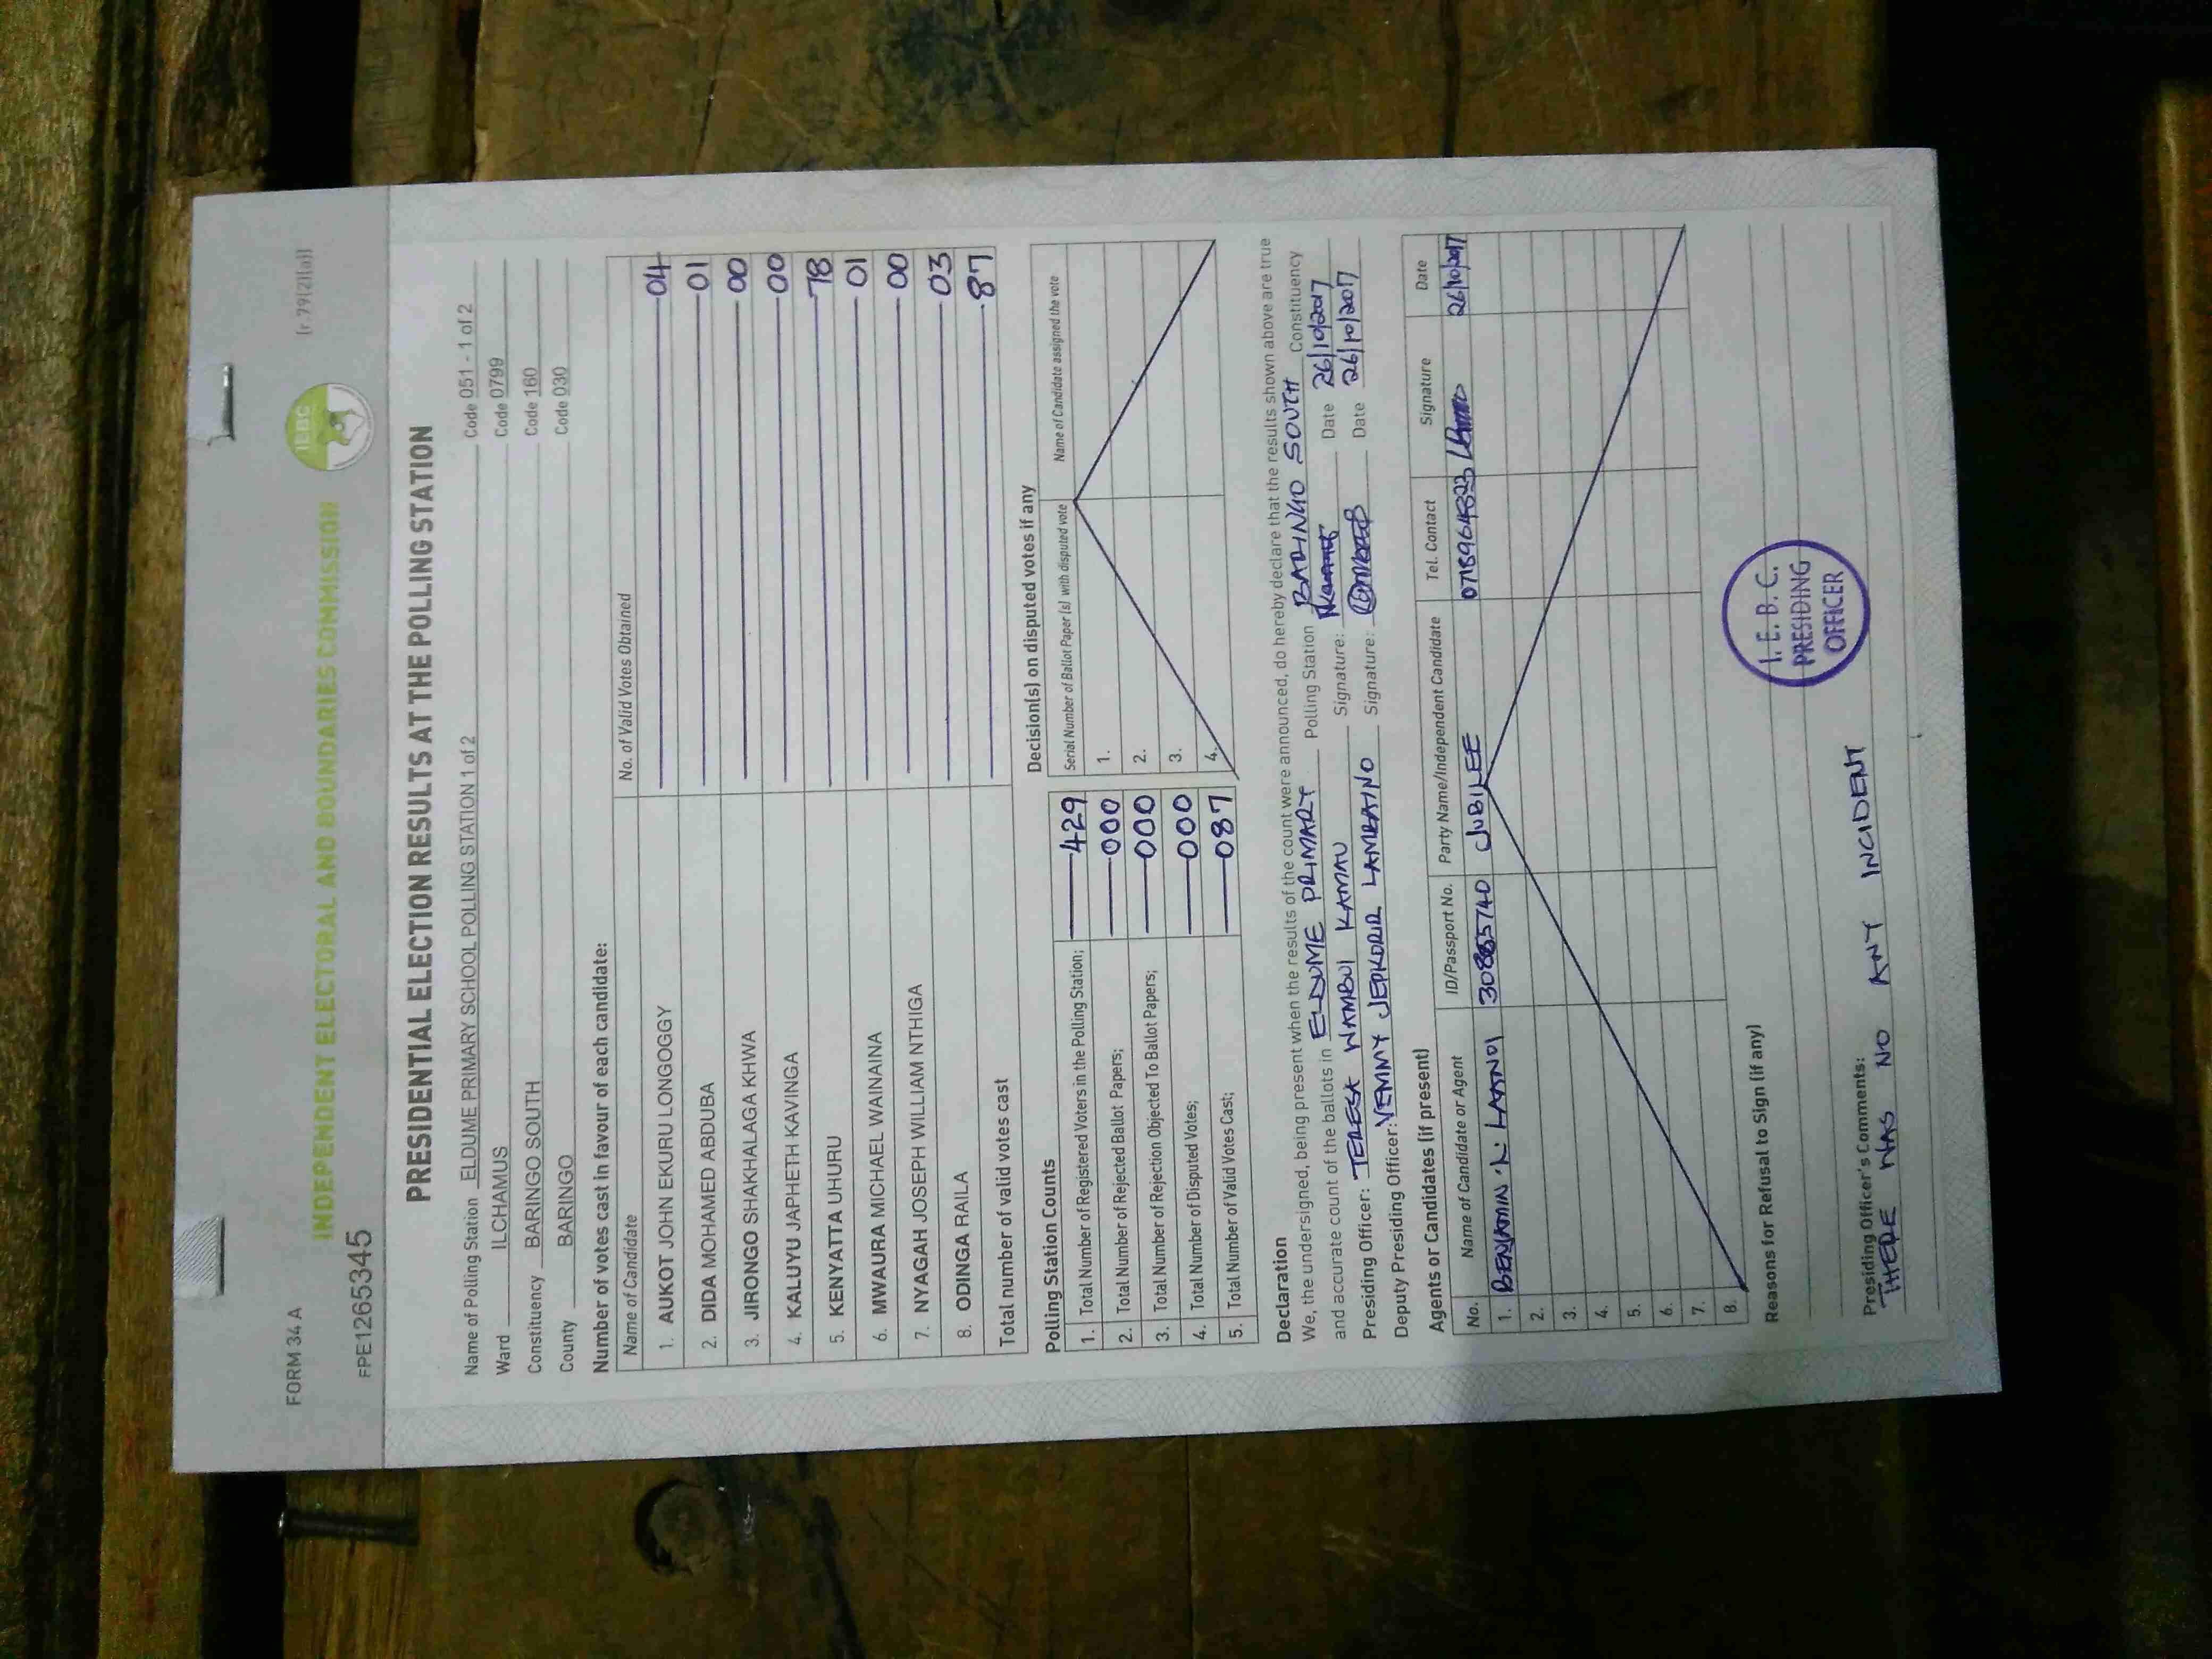 FORM 34 A
[r.79(2)(a)]
INDEPENDENT ELECTORAL AND BOUNDARIES COMMISSION
IEBC
FPE1265345
PRESIDENTIAL ELECTION RESULTS AT THE POLLING STATION
Name of Polling Station ELDUME PRIMARY SCHOOL POLLING STATION 1 of 2 Code 051 - 1 of 2
Ward ILCHAMUS Code 0799
Constituency BARINGO SOUTH Code 160
County BARINGO Code 030
Number of votes cast in favour of each candidate:
Name of Candidate No. of Valid Votes Obtained
1. AUKOT JOHN EKURU LONGOGGY 04
2. DIDA MOHAMED ABDUBA 01
3. JIRONGO SHAKHALAGA KHWA 00
4. KALUYU JAPHETH KAVINGA 00
5. KENYATTA UHURU 78
6. MWAURA MICHAEL WAINAINA 01
7. NYAGAH JOSEPH WILLIAM NTHIGA 00
8. ODINGA RAILA 03
Total number of valid votes cast 87
Polling Station Counts
1. Total Number of Registered Voters in the Polling Station; 429
2. Total Number of Rejected Ballot Papers; 000
3. Total Number of Rejection Objected To Ballot Papers; 000
4. Total Number of Disputed Votes; 000
5. Total Number of Valid Votes Cast; 087
Decision(s) on disputed votes if any
Serial Number of Ballot Paper (s) with disputed vote Name of Candidate assigned the vote
1.
2.
3.
4.
Declaration
We, the undersigned, being present when the results of the count were announced, do hereby declare that the results shown above are true
and accurate count of the ballots in ELDUME PRIMARY Polling Station BARINGO SOUTH Constituency
Presiding Officer: TERESA WAMBUI KAMAU Signature: Date 26/10/2017
Deputy Presiding Officer: VEMMY JEPKORIR LAMEAINO Signature: Date 26/10/2017
Agents or Candidates (if present)
No. Name of Candidate or Agent ID/Passport No. Party Name/Independent Candidate Tel. Contact Signature Date
1. BENJAMIN JUBILEE 26/10/2017
2.
3.
4.
5.
6.
7.
8.
Reasons for Refusal to Sign (if any)
Presiding Officer's Comments:
THERE WAS NO ANY INCIDENT
I.E.B.C.
PRESIDING
OFFICER